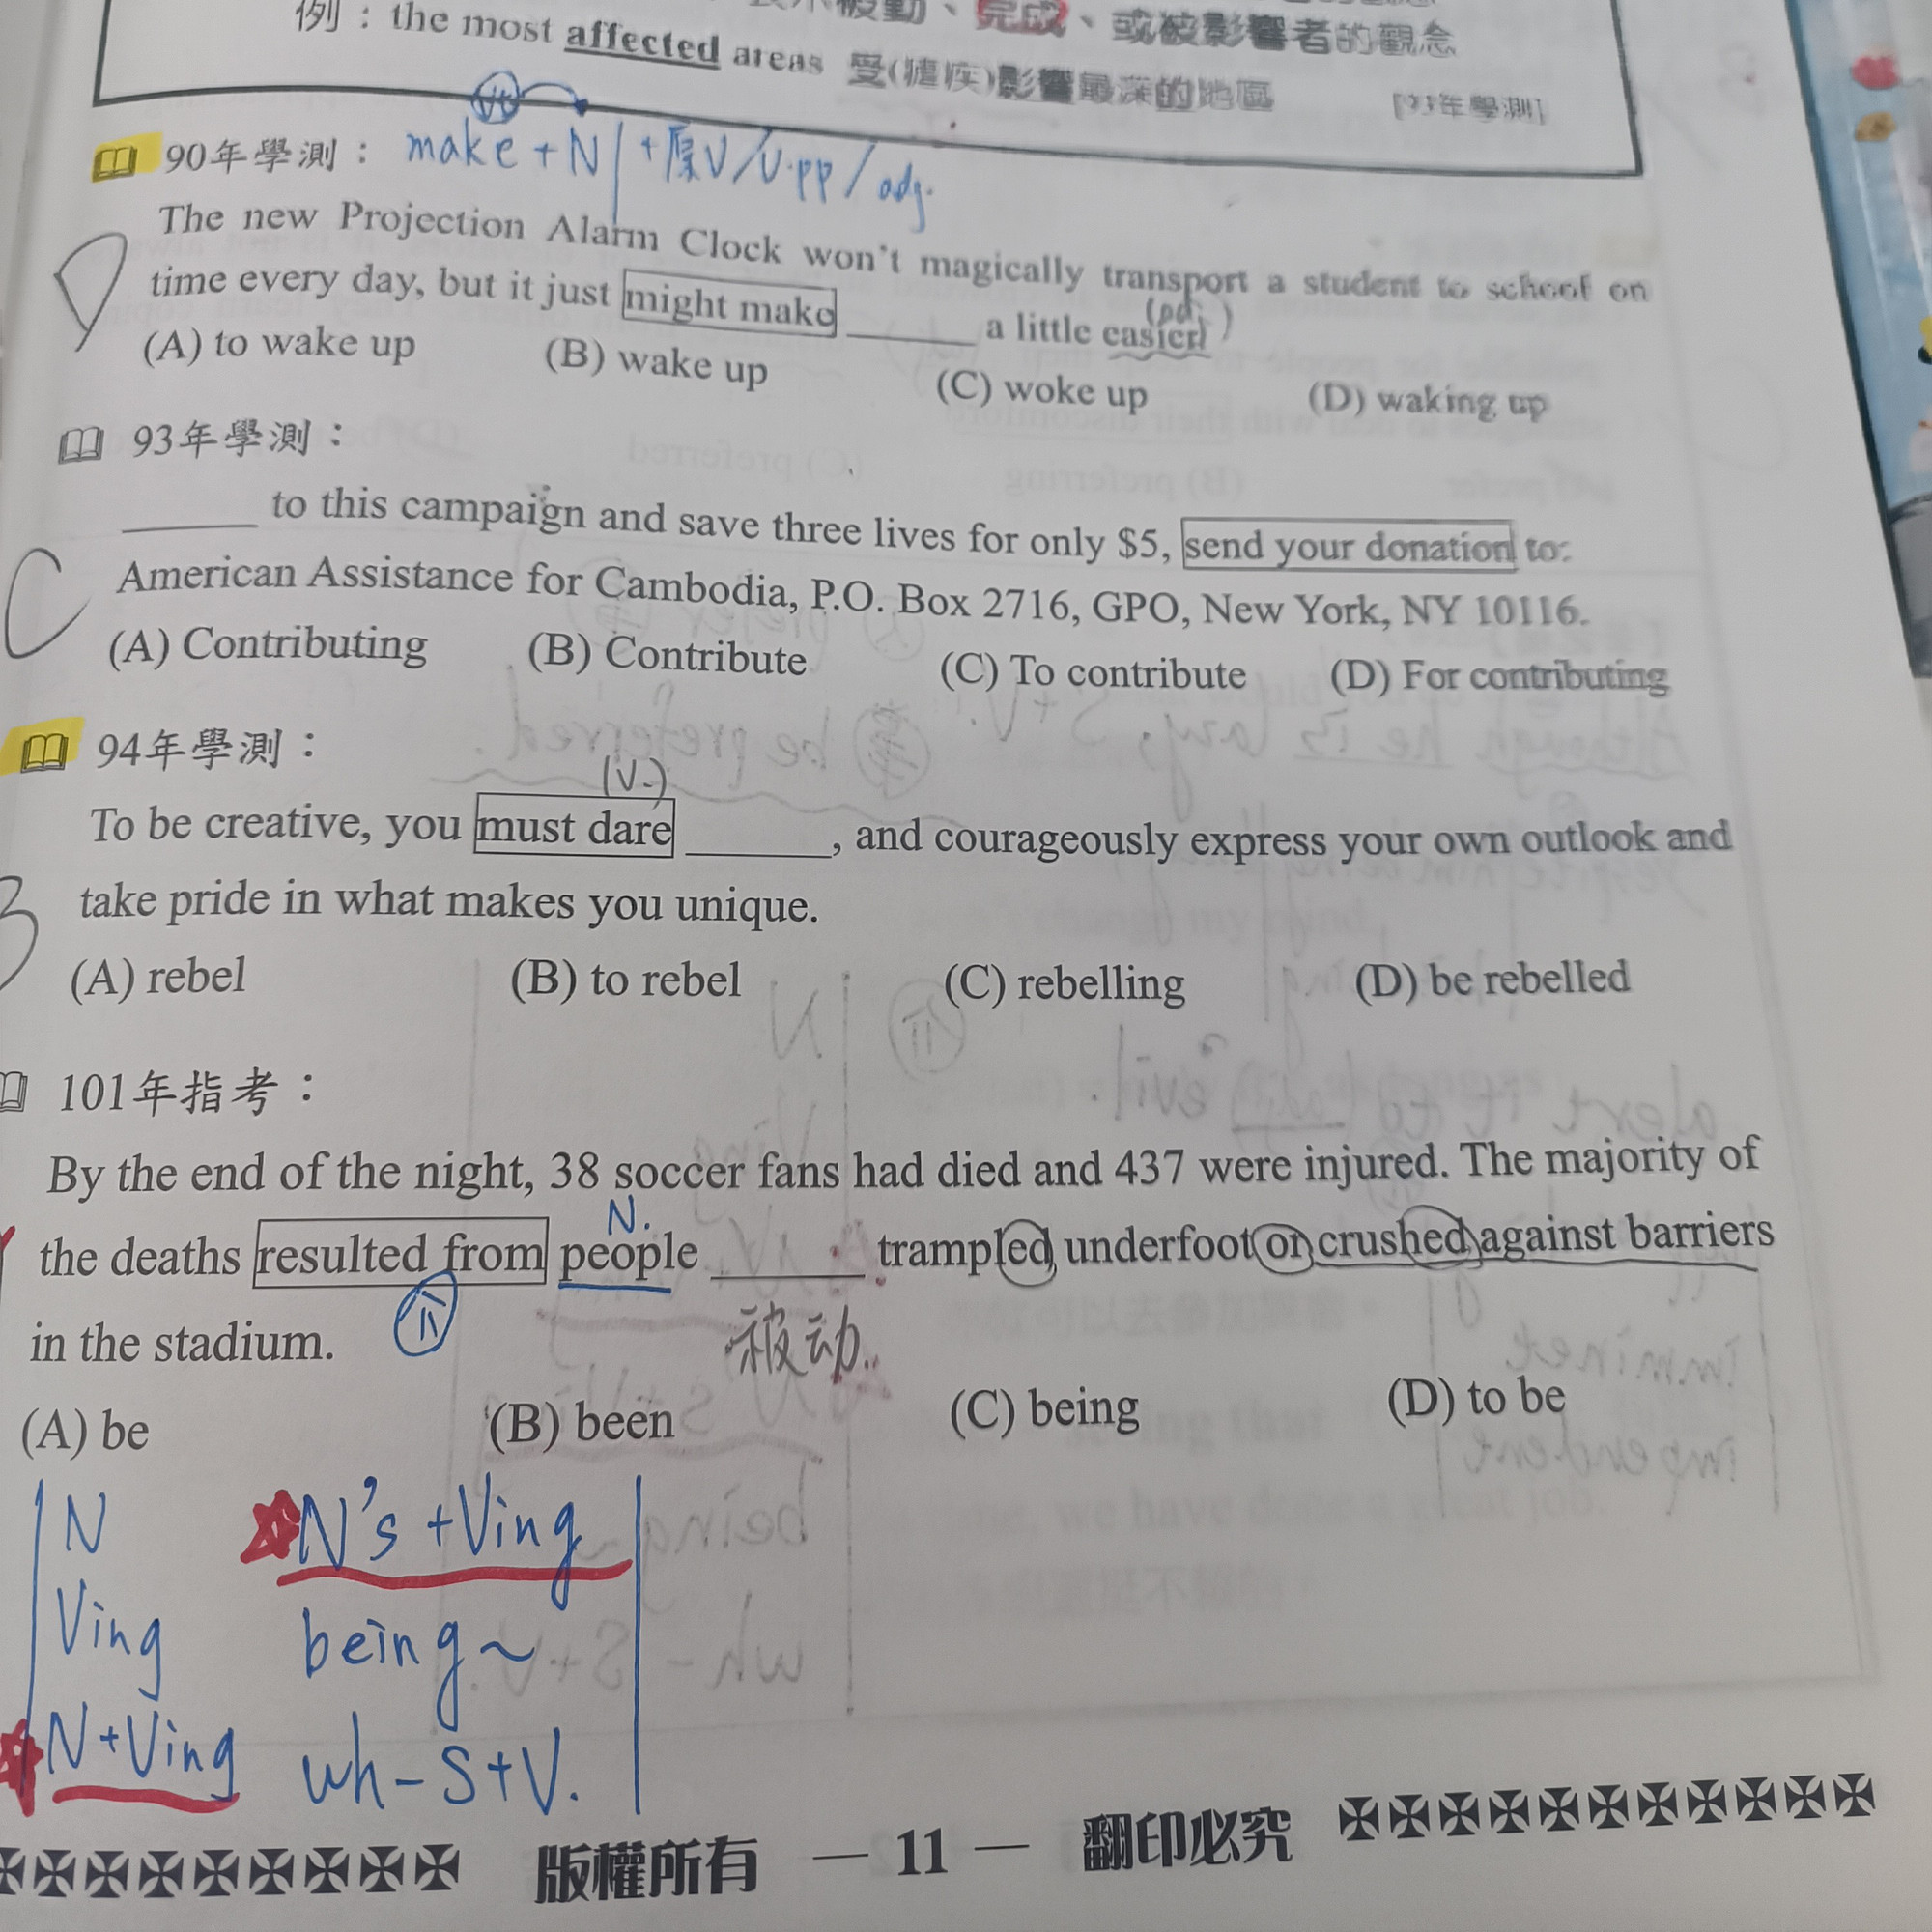 被動、完成、或被影響者的觀念
例：the most affected areas 受(瘧疾)影響最深的地區 [93年學測]
90年學測： make + N + 原V / V.pp / adj.
The new Projection Alarm Clock won't magically transport a student to school on
(adj.)
time every day, but it just might make ______ a little easier!
(A) to wake up (B) wake up (C) woke up (D) waking up
D
93年學測：
______ to this campaign and save three lives for only $5, send your donation to:
American Assistance for Cambodia, P.O. Box 2716, GPO, New York, NY 10116.
C
(A) Contributing (B) Contribute (C) To contribute (D) For contributing
94年學測：
(V.)
To be creative, you must dare ______, and courageously express your own outlook and
take pride in what makes you unique.
B
(A) rebel (B) to rebel (C) rebelling (D) be rebelled
101年指考：
By the end of the night, 38 soccer fans had died and 437 were injured. The majority of
N.
the deaths resulted from people ______ trampled underfoot or crushed against barriers
介 被动
in the stadium.
(A) be (B) been (C) being (D) to be
N N's + Ving
Ving being~
N + Ving wh- S + V.
版權所有 — 11 — 翻印必究